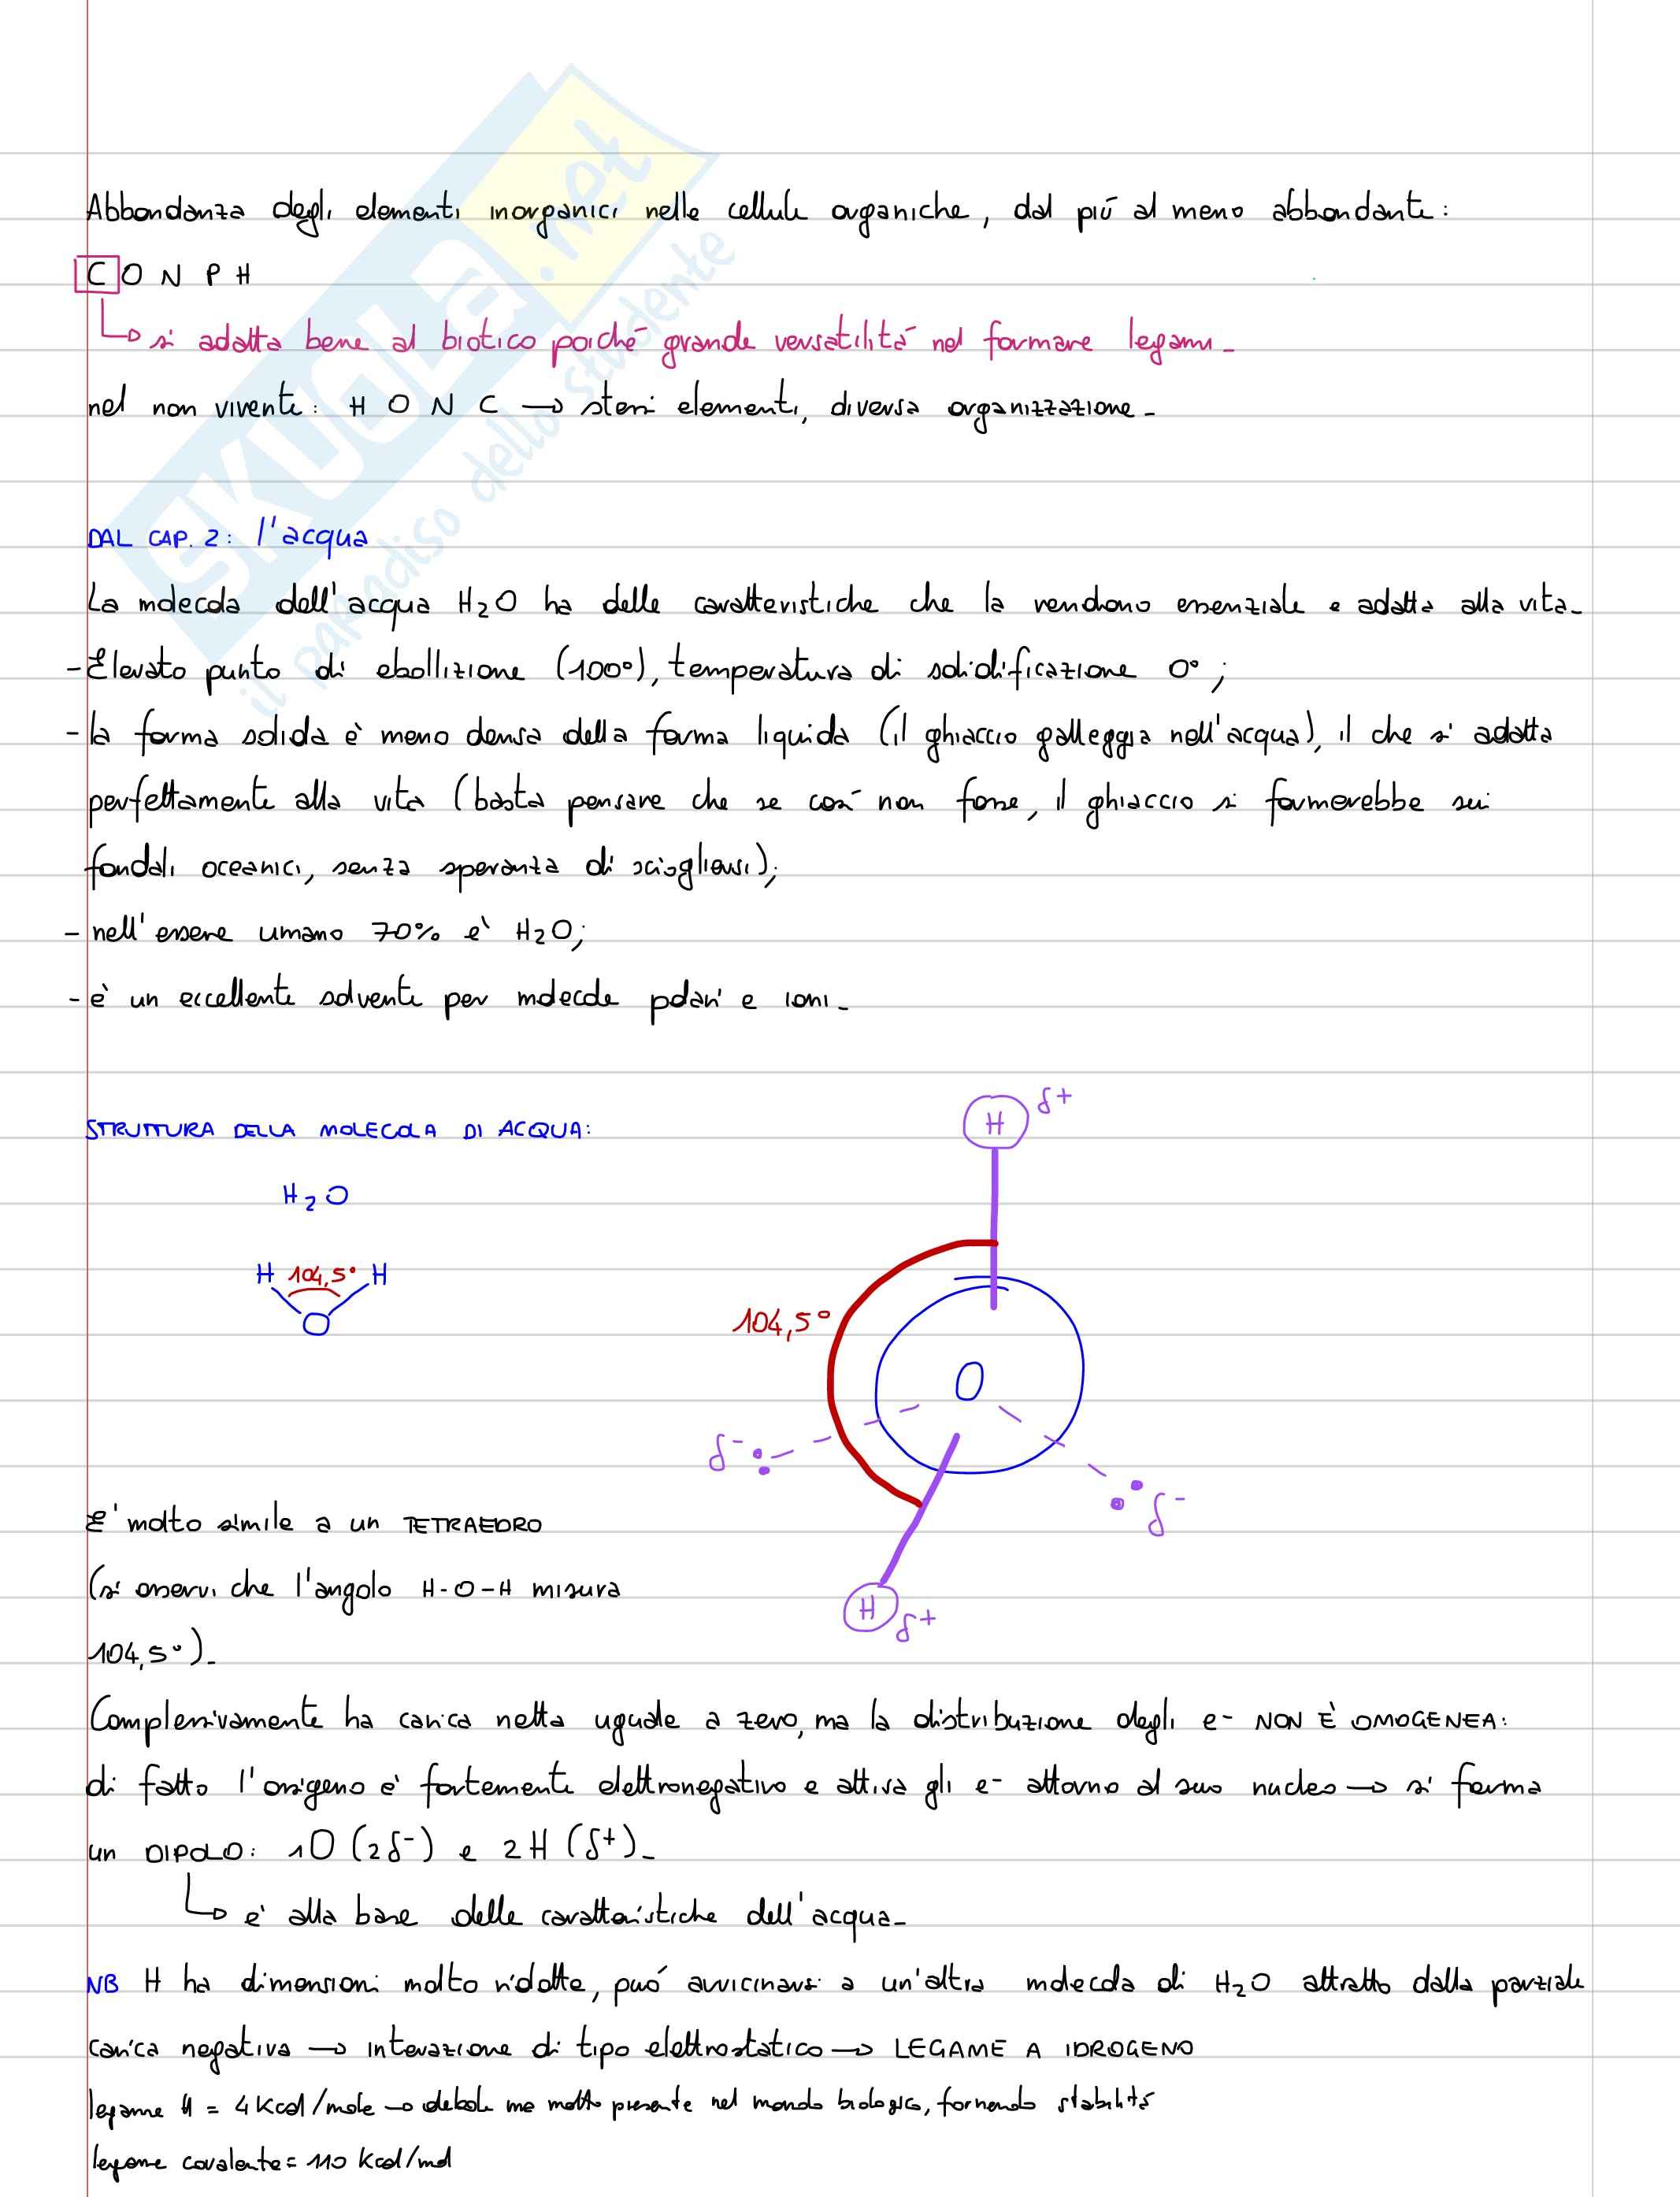 Abbondanza degli elementi inorganici nelle cellule organiche, dal più al meno abbondante:
C O N P H
si adatta bene al biotico poiché grande versatilità nel formare legami_
nel non vivente: H O N C → stessi elementi, diversa organizzazione_
DAL CAP. 2: l'acqua
La molecola dell'acqua H₂O ha delle caratteristiche che la rendono essenziale e adatta alla vita_
- Elevato punto di ebollizione (100°), temperatura di solidificazione 0°;
- la forma solida è meno densa della forma liquida (il ghiaccio galleggia nell'acqua), il che si adatta
perfettamente alla vita (basta pensare che se così non fosse, il ghiaccio si formerebbe sui
fondali oceanici, senza speranza di sciogliersi);
- nell'essere umano 70% è H₂O;
- è un eccellente solvente per molecole polari e ioni_
STRUTTURA DELLA MOLECOLA DI ACQUA:
H₂O
H 104,5° H
O
H δ+
104,5°
O
δ-
δ-
H δ+
E' molto simile a un TETRAEDRO
(si osservi che l'angolo H-O-H misura
104,5°)_
Complessivamente ha carica netta uguale a zero, ma la distribuzione degli e- NON È OMOGENEA:
di fatto l'ossigeno è fortemente elettronegativo e attira gli e- attorno al suo nucleo → si forma
un DIPOLO: 1O (2δ-) e 2H (δ+)_
è alla base delle caratteristiche dell'acqua_
NB H ha dimensioni molto ridotte, può avvicinarsi a un'altra molecola di H₂O attratto dalla parziale
carica negativa → interazione di tipo elettrostatico → LEGAME A IDROGENO
legame H = 4 Kcal/mole → debole ma molto presente nel mondo biologico, fornendo stabilità
legame covalente = 110 Kcal/mol
SKUOLA.net
il paradiso dello studente